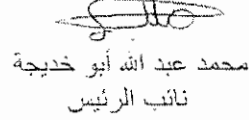 محمد عبد الله أبو خديجة
نائب الرئيس